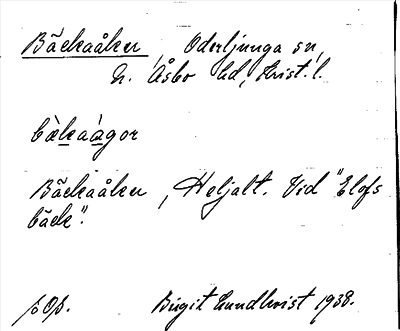 Bäckaåker, Oderljunga sn,
N. Åsbo hd, Krist. l.
bækaágor
Bäckaåker, Heljalt. Vid "Elofs
bäck".
Birgit Lundkvist 1938.